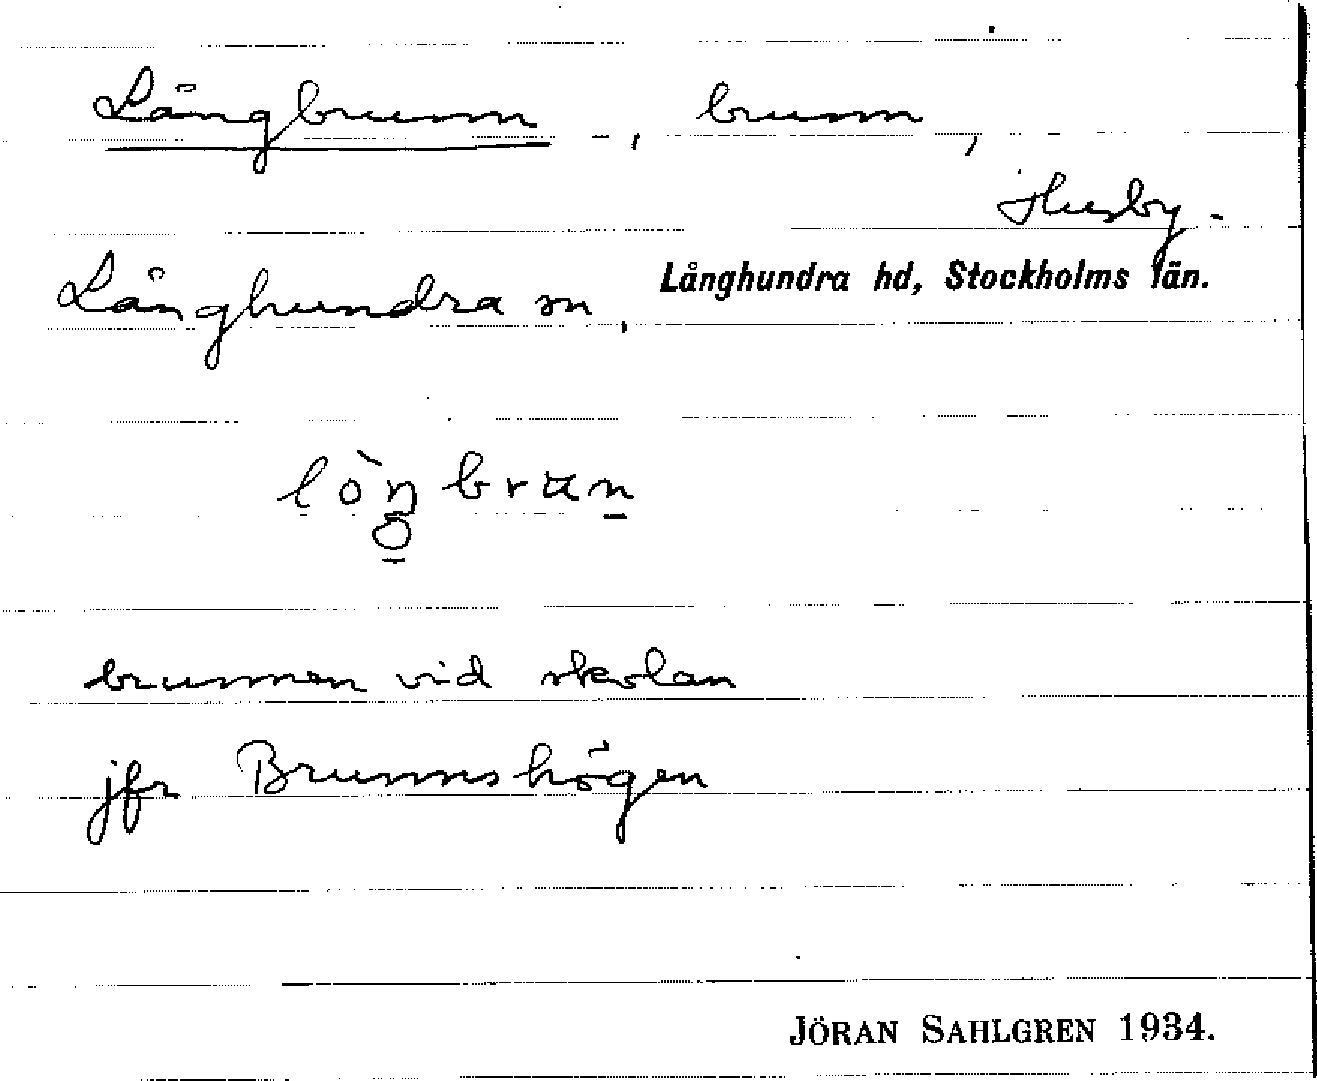 Långbrunn -, brunn,
Husby-
Långhundra sn, Långhundra hd, Stockholms län.
lò̀ŋ̠brun̠
brunnen vid skolan
jfr Brunnshögen
JÖRAN SAHLGREN 1934.